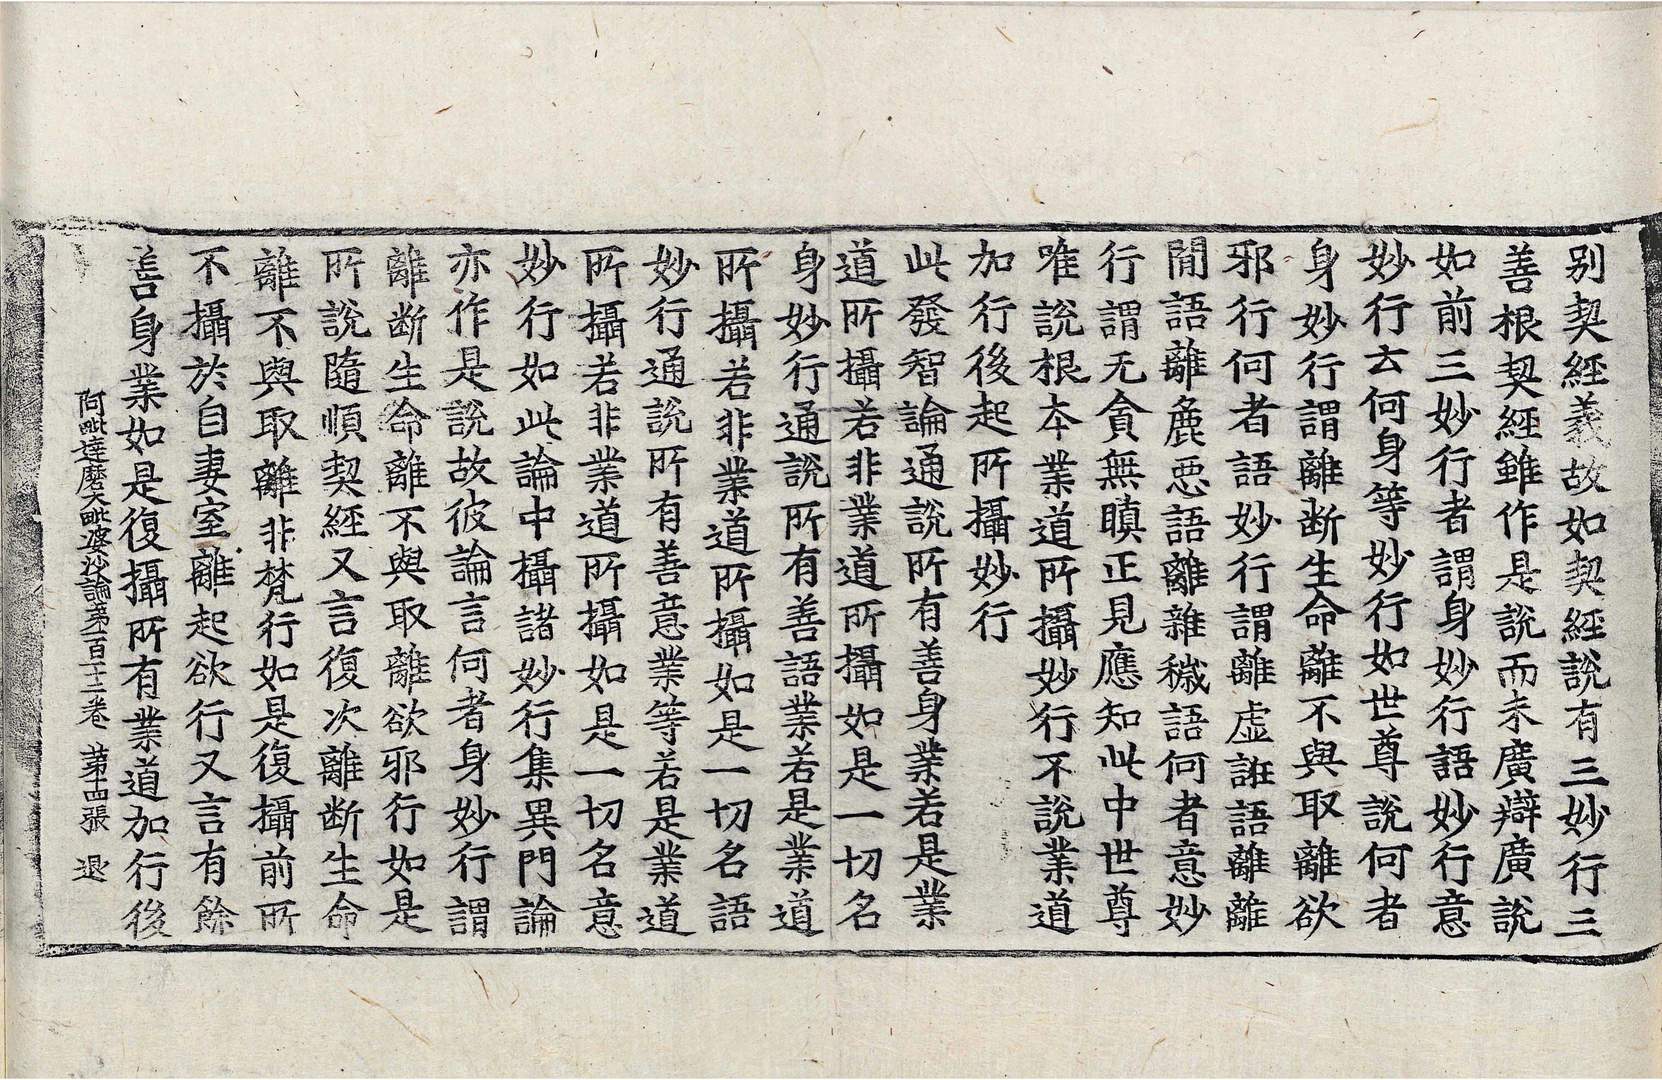 別契經義故如契經說有三妙行三
善根契經雖作是說而未廣辯廣說
如前三妙行者謂身妙行語妙行意
妙行去何身等妙行如世尊說何者
身妙行謂離断生命離不與取離欲
邪行何者語妙行謂離虛誑語離離
間語離麁惡語離雜穢語何者意妙
行謂无貪無瞋正見應知此中世尊
唯說根本業道所攝妙行不說業道
加行後起所攝妙行
此發智論通說所有善身業若是業
道所攝若非業道所攝如是一切名
身妙行通說所有善語業若是業道
所攝若非業道所攝如是一切名語
妙行通說所有善意業等若是業道
所攝若非業道所攝如是一切名意
妙行如此論中攝諸妙行集異門論
亦作是說故彼論言何者身妙行謂
離断生命離不與取離欲邪行如是
所說隨順契經又言復次離断生命
離不與取離非梵行如是復攝前所
不攝於自妻室離起欲行又言有餘
善身業如是復攝所有業道加行後
阿毗達磨大毗婆沙論第一百十二卷 第十四張 退